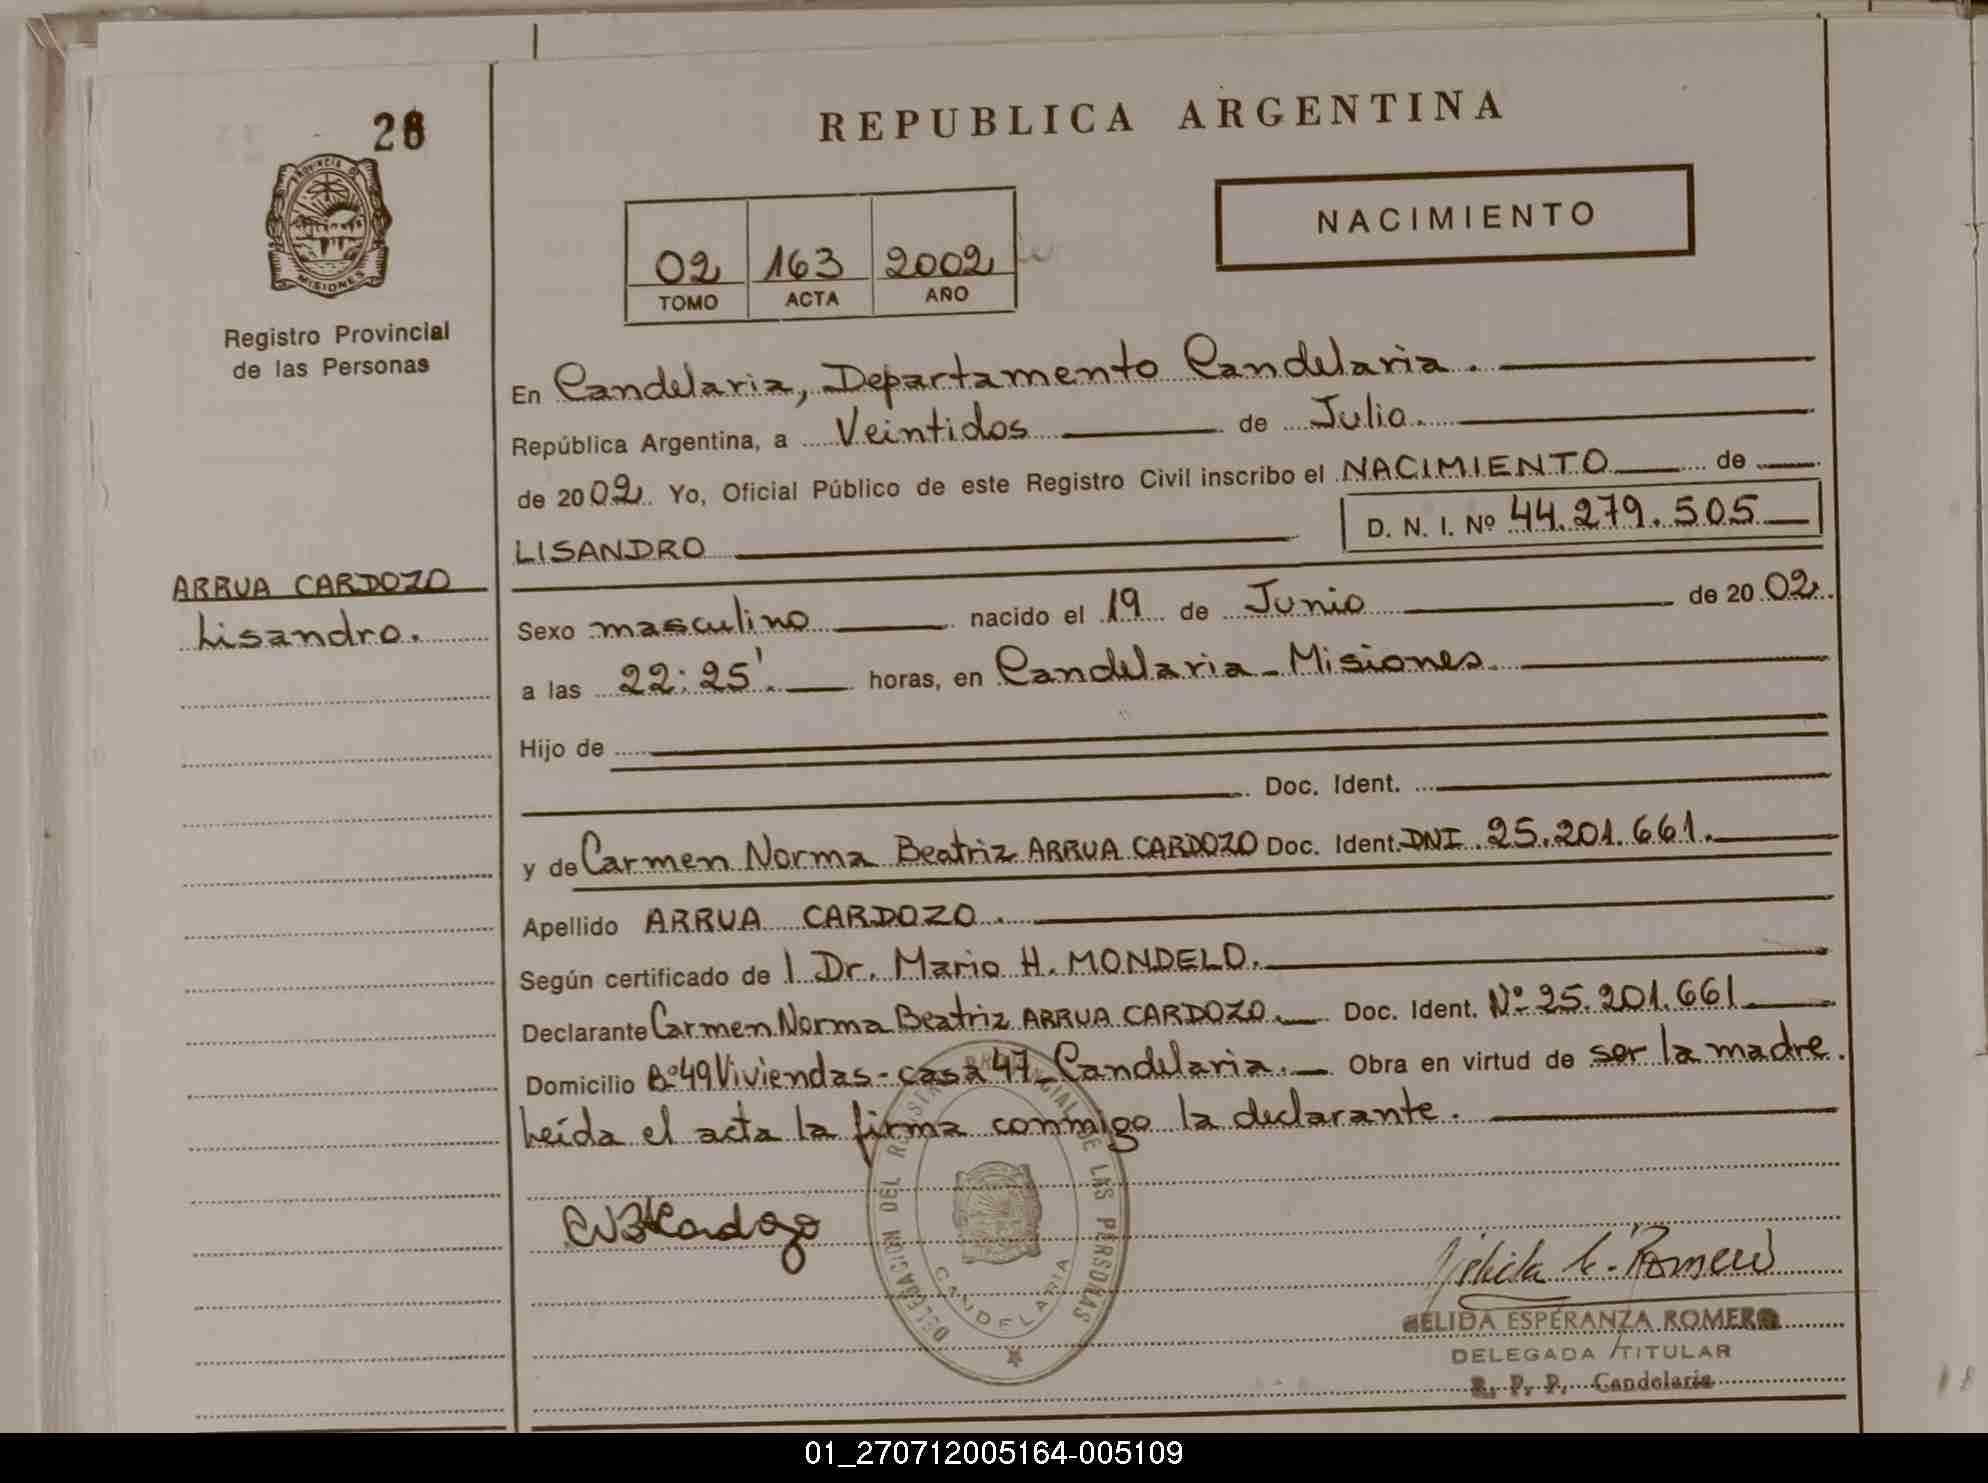 28
PROVINCIA DE
MISIONES
Registro Provincial
de las Personas
ARRUA CARDOZO
Lisandro.
REPUBLICA ARGENTINA
NACIMIENTO
02 163 2002
TOMO ACTA AÑO
En Candelaria, Departamento Candelaria.
República Argentina, a Veintidos de Julio.
de 2002. Yo, Oficial Público de este Registro Civil inscribo el NACIMIENTO de
LISANDRO D. N. I. Nº 44.279.505
Sexo masculino nacido el 19 de Junio de 2002.
a las 22:25'. horas, en Candelaria - Misiones.
Hijo de
Doc. Ident.
y de Carmen Norma Beatriz ARRUA CARDOZO Doc. Ident. DNI 25.201.661.
Apellido ARRUA CARDOZO.
Según certificado de l Dr. Mario H. MONDELO.
Declarante Carmen Norma Beatriz ARRUA CARDOZO. Doc. Ident. Nº 25.201.661
Domicilio Bº 49 Viviendas - casa 47 - Candelaria. Obra en virtud de ser la madre.
Leída el acta la firma conmigo la declarante.
DELEGACION DEL REGISTRO PROVINCIAL DE LAS PERSONAS
CANDELARIA
Romero
ELIDA ESPERANZA ROMERO
DELEGADA TITULAR
R. P. P. Candelaria
01_270712005164-005109